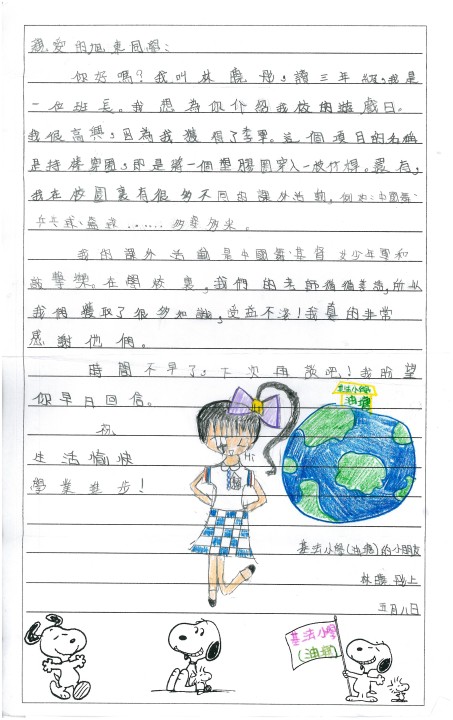 親愛的旭東同學：
你好嗎？我叫林曉彤，讀三年級，我是
一位班長。我想為你介紹我校的遊戲日。
我很高興，因為我獲得了季軍。這個項目的名稱
是持棒穿圈，即是將一個塑膠圈穿入一枝竹桿。還有，
我在校園裏有很多不同的課外活動，例如：中國舞、
乒乓球、藝術……多姿多采。
我的課外活動是中國舞、基督女少年軍和
敲擊樂。在學校裏，我們的老師循循善誘，所以
我們獲取了很多知識，受益不淺！我真的非常
感謝他們。
時間不早了，下次再談吧！我盼望
你早日回信。
祝
生活愉快
學業進步！
基法小學
油塘
Hi
基法小學(油塘)的小朋友
林曉彤上
五月八日
基法小學
(油塘)